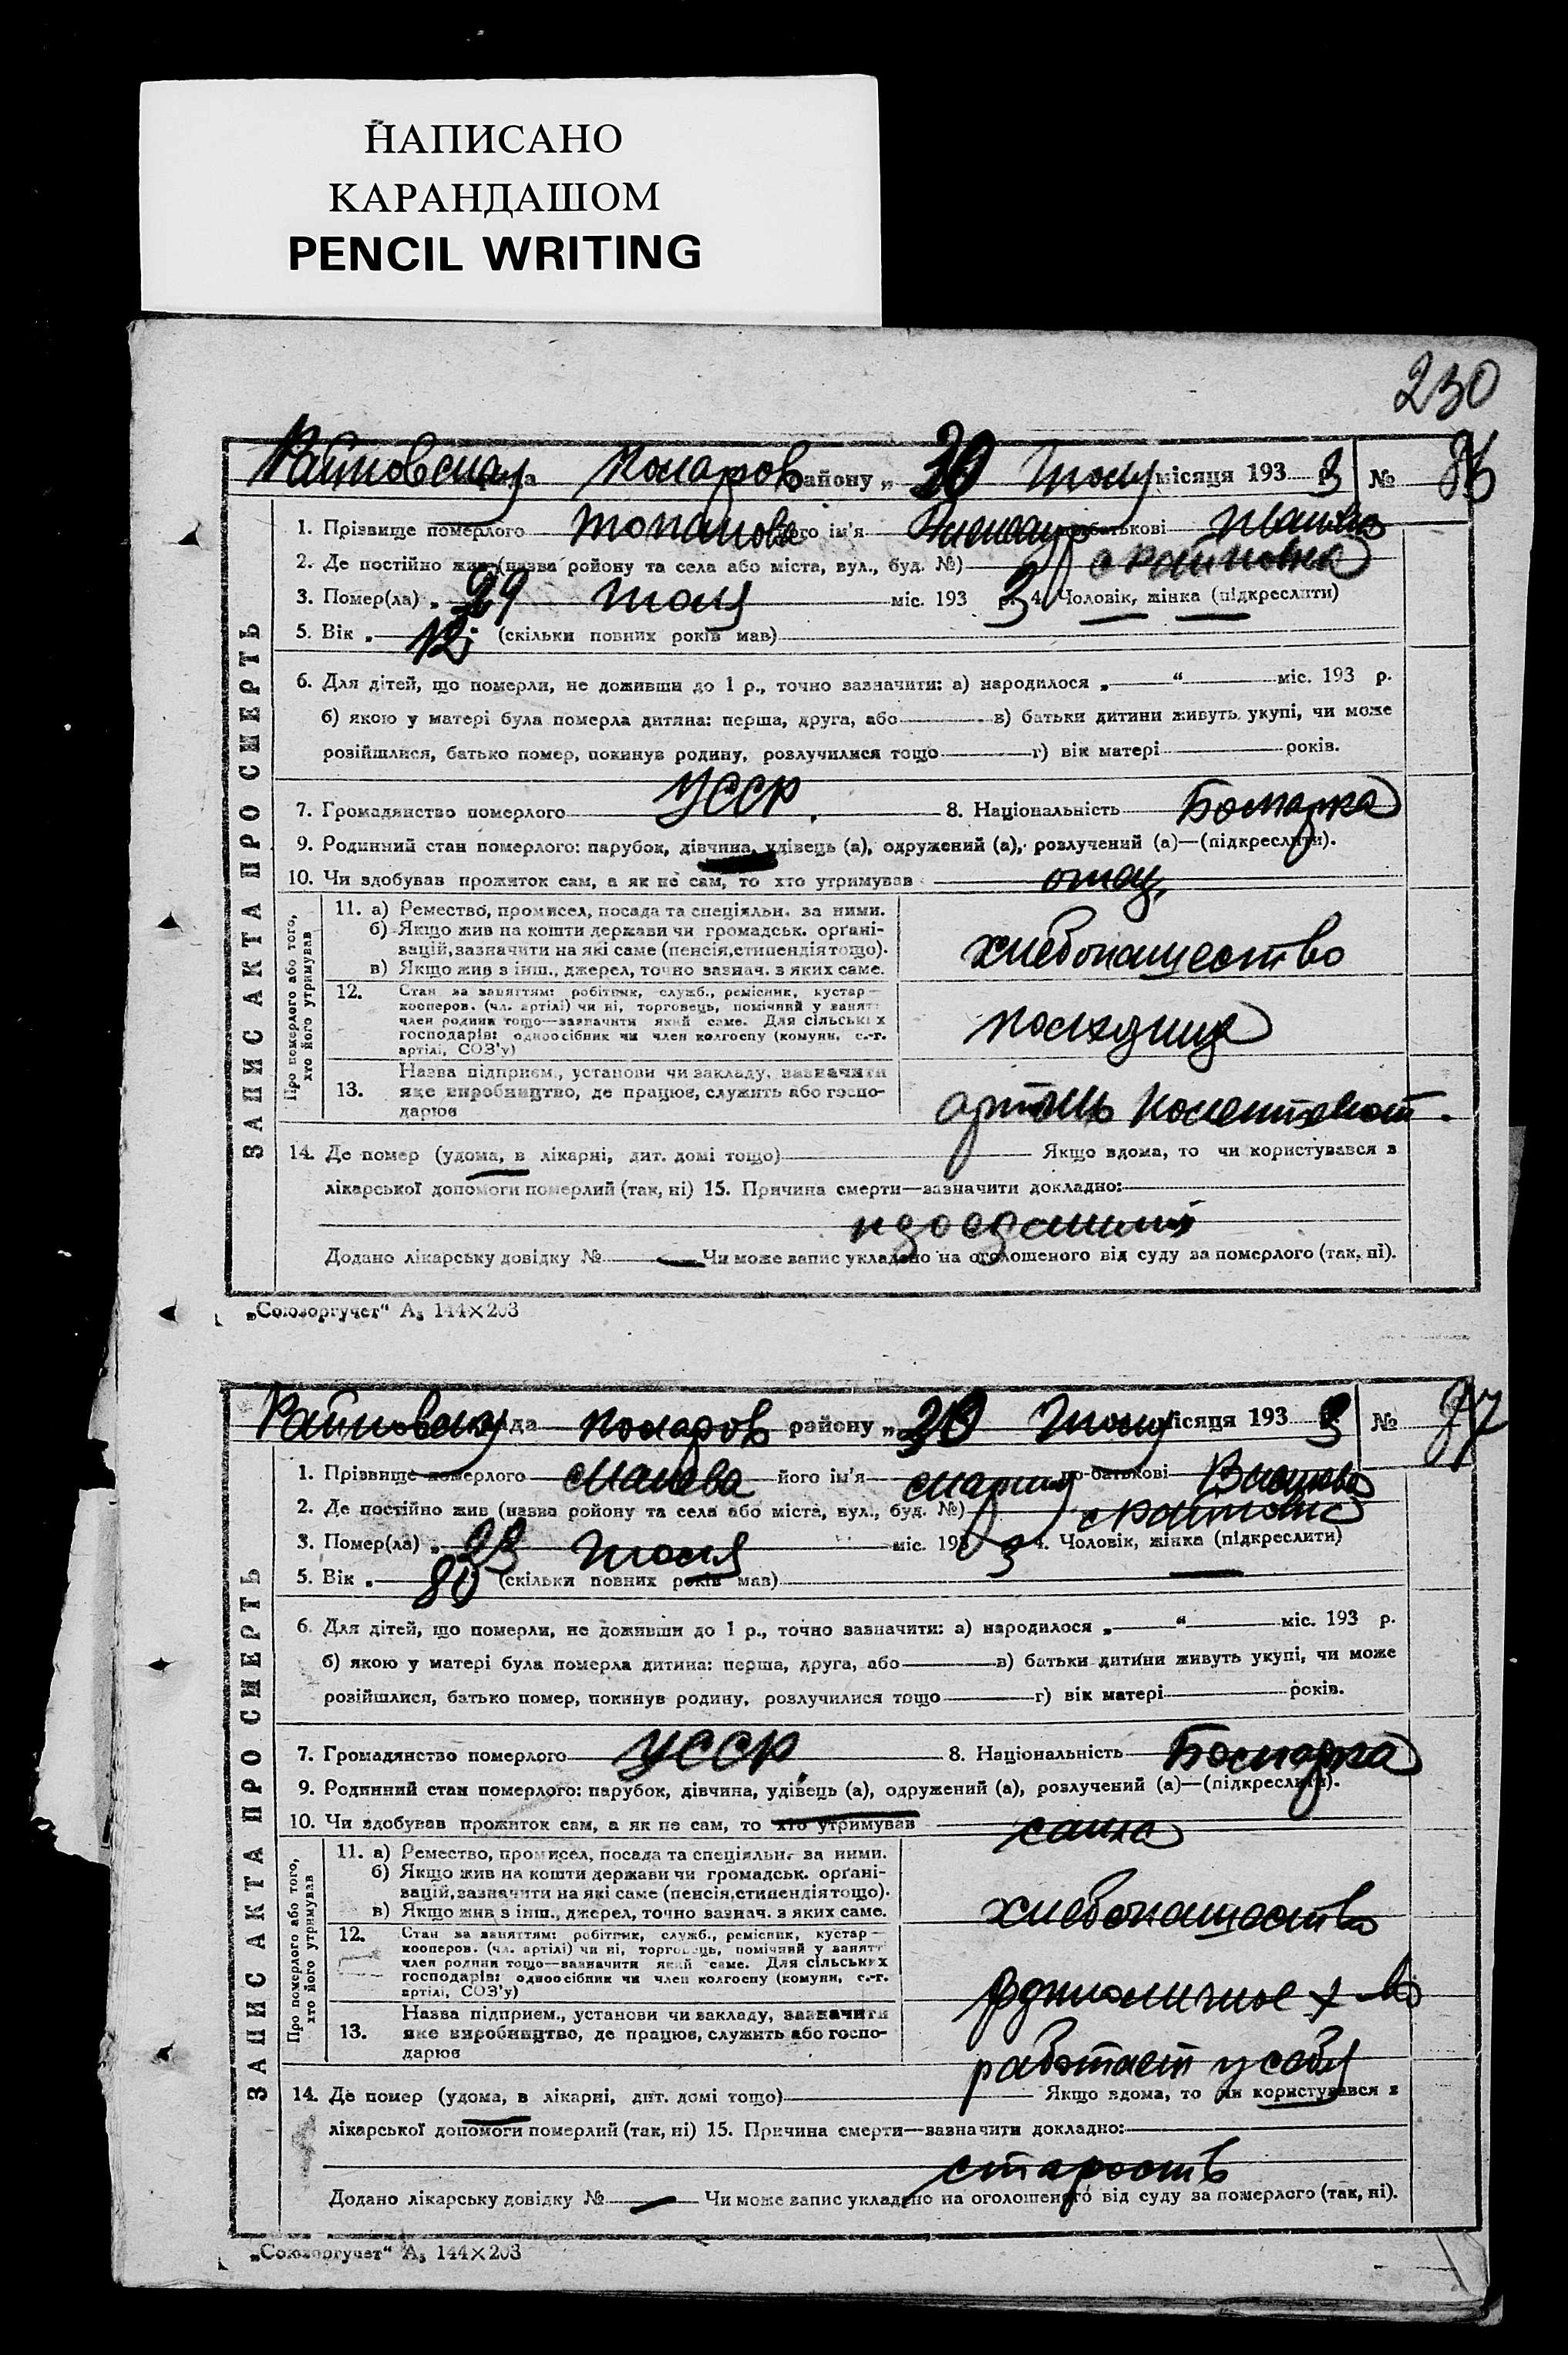 НАПИСАНО
КАРАНДАШОМ
PENCIL WRITING
230
району „ 30 193 3 № 86
1. Прізвище померлого його ім'я по-батькові
2. Де постійно жив (назва району та села або міста, вул., буд. №)
3. Помер(ла) „ 29 міс. 193 3 р. 4. Чоловік, жінка (підкреслити)
5. Вік „ 12 (скільки повних років мав)
6. Для дітей, що померли, не доживши до 1 р., точно зазначити: а) народилося „ “ міс. 193 р.
б) якою у матері була померла дитина: перша, друга, або в) батьки дитини живуть укупі, чи може
розійшлися, батько помер, покинув родину, розлучилися тощо г) вік матері років.
7. Громадянство померлого УССР. 8. Національність Болгарка
9. Родинний стан померлого: парубок, дівчина, удівець (а), одружений (а), розлучений (а)—(підкреслити).
10. Чи здобував прожиток сам, а як не сам, то хто утримував отец
ЗАПИС АКТА ПРО СМЕРТЬ
Про померлого або того, хто його утримував
11. а) Ремество, промисел, посада та спеціяльн. за ними.
б) Якщо жив на кошти держави чи громадськ. органі-
зацій, зазначити на які саме (пенсія, стипендія тощо).
в) Якщо жив з інш., джерел, точно зазнач. з яких саме.
хлебопашество
12. Стан за заняттям: робітник, служб., ремісник, кустар—
кооперов. (чл. артілі) чи ні, торговець, помічний у занятті
член родини тощо—зазначити який саме. Для сільських
господарів: одноосібник чи член колгоспу (комуни, с.-г.
артілі, СОЗ'у)
13. Назва підприєм., установи чи закладу, зазначити
яке виробництво, де працює, служить або госпо-
дарює
14. Де помер (удома, в лікарні, дит. домі тощо) Якщо вдома, то чи користувався з
лікарської допомоги померлий (так, ні) 15. Причина смерти—зазначити докладно:
Додано лікарську довідку № — Чи може запис укладено на оголошеного від суду за померлого (так, ні).
„Союзоргучет“ А₅ 144×203
району „ місяця 193 3 № 87
1. Прізвище померлого його ім'я Мария по-батькові
2. Де постійно жив (назва району та села або міста, вул., буд. №)
3. Помер(ла) „ міс. 193 3 4. Чоловік, жінка (підкреслити)
5. Вік „ 80 (скільки повних років мав)
6. Для дітей, що померли, не доживши до 1 р., точно зазначити: а) народилося „ “ міс. 193 р.
б) якою у матері була померла дитина: перша, друга, або в) батьки дитини живуть укупі, чи може
розійшлися, батько помер, покинув родину, розлучилися тощо г) вік матері років.
7. Громадянство померлого УССР. 8. Національність Болгарка
9. Родинний стан померлого: парубок, дівчина, удівець (а), одружений (а), розлучений (а)—(підкреслити).
10. Чи здобував прожиток сам, а як не сам, то хто утримував сама
ЗАПИС АКТА ПРО СМЕРТЬ
Про померлого або того, хто його утримував
11. а) Ремество, промисел, посада та спеціяльн. за ними.
б) Якщо жив на кошти держави чи громадськ. органі-
зацій, зазначити на які саме (пенсія, стипендія тощо).
в) Якщо жив з інш., джерел, точно зазнач. з яких саме.
хлебопашество
12. Стан за заняттям: робітник, служб., ремісник, кустар—
кооперов. (чл. артілі) чи ні, торговець, помічний у занятті
член родини тощо—зазначити який саме. Для сільських
господарів: одноосібник чи член колгоспу (комуни, с.-г.
артілі, СОЗ'у)
единоличное х-во
13. Назва підприєм., установи чи закладу, зазначити
яке виробництво, де працює, служить або госпо-
дарює
работает у себя
14. Де помер (удома, в лікарні, дит. домі тощо) Якщо вдома, то чи користувався з
лікарської допомоги померлий (так, ні) 15. Причина смерти—зазначити докладно:
старость
Додано лікарську довідку № — Чи може запис укладено на оголошеного від суду за померлого (так, ні).
„Союзоргучет“ А₅ 144×203